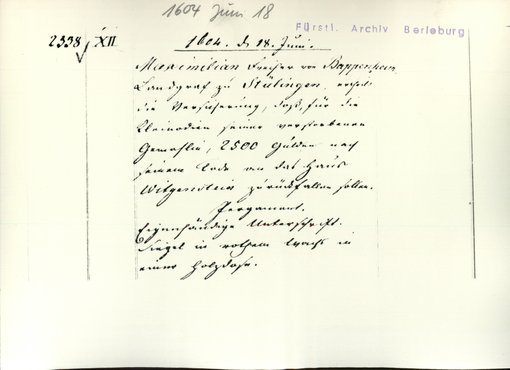 1604 Juni 18
Fürstl. Archiv Berleburg
2338 XII
1604. d. 18. Juni.
Maximilian Freiher von Pappenheim,
Landgraf zu Stülingen, ertheilt
die Versicherung, daß, für die
Kleinodien seiner verstorbenen
Gemahlin, 2500 Gulden nach
seinem Tode an das Haus
Witgenstein zurückfallen sollen.
Pergament.
Eigenhändige Unterschrift.
Siegel in rothem Wachs in
einer Holzdose.